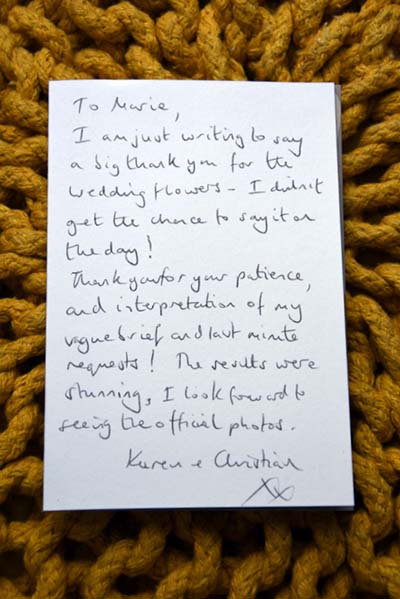 To Marie,
I am just writing to say
a big thank you for the
wedding flowers - I didn't
get the chance to say it on
the day!
Thank you for your patience,
and interpretation of my
vague brief and last minute
requests! The results were
stunning, I look forward to
seeing the official photos.
Karen & Christian
xx